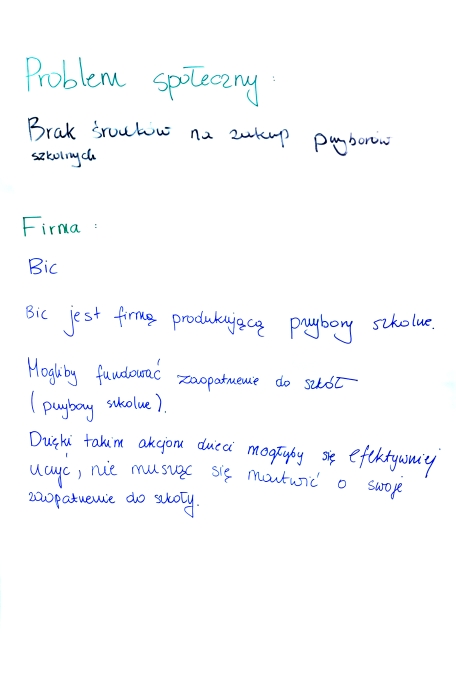 Problem społeczny:
Brak środków na zakup przyborów
szkolnych
Firma:
Bic
Bic jest firmą produkującą przybory szkolne.
Mogliby fundować zaopatrzenie do szkół
(przybory szkolne).
Dzięki takim akcjom dzieci mogłyby się efektywniej
uczyć, nie musząc się martwić o swoje
zaopatrzenie do szkoły.